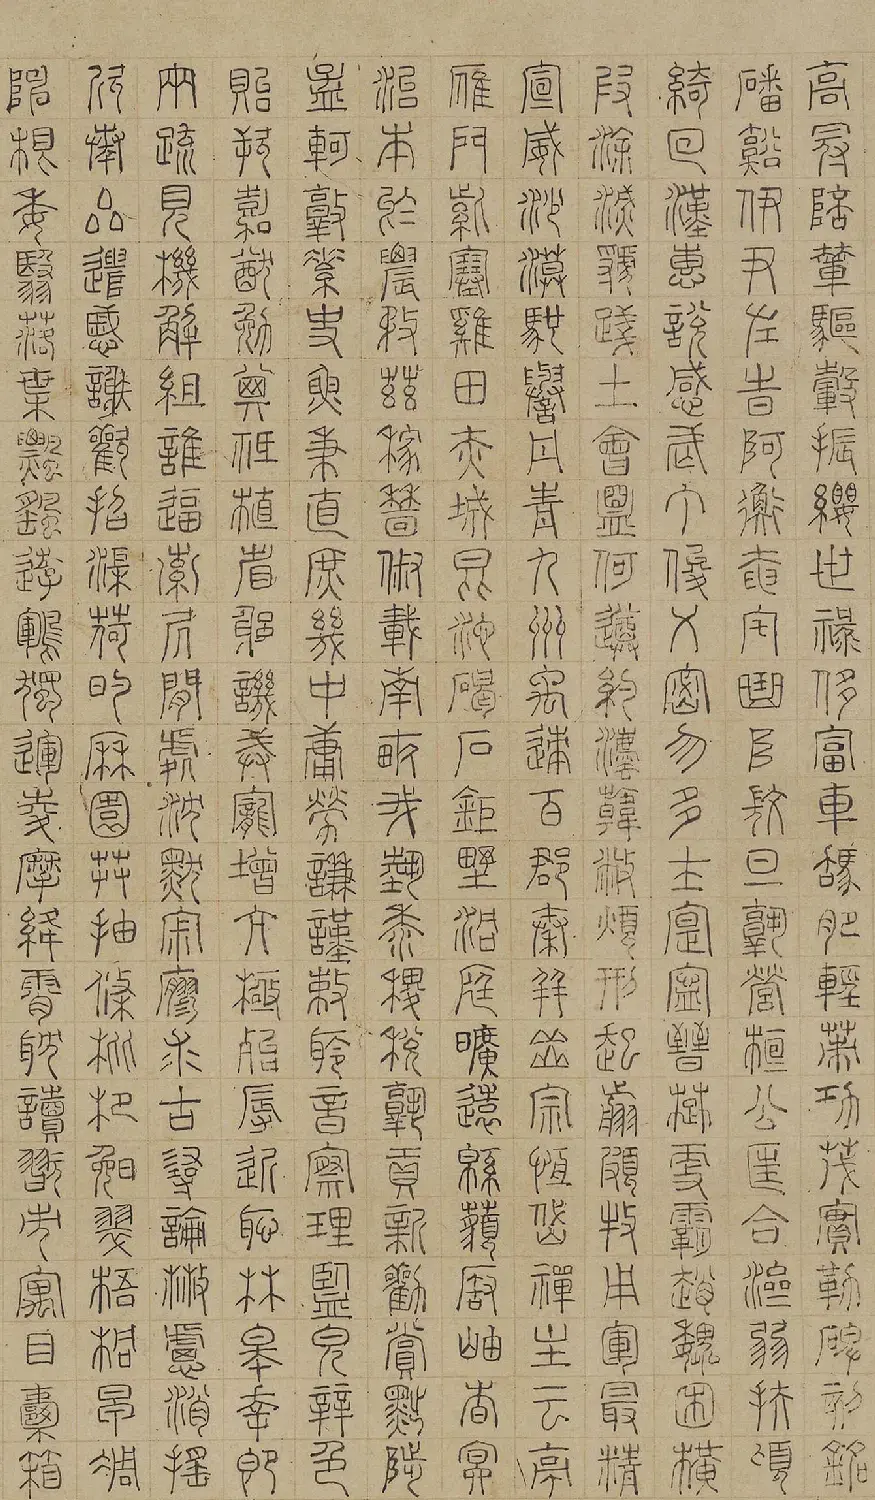 高冠陪輦驅轂振纓世祿侈富車駕肥輕策功茂實勒碑刻銘
磻谿伊尹左時阿衡奄宅曲阜微旦孰營桓公匡合濟弱扶傾
綺回漢惠說感武丁俊乂密勿多士寔寧晉楚更霸趙魏困橫
假涂滅虢踐土會盟何遵約法韓弊煩刑起翦頗牧用軍最精
宣威沙漠馳譽丹青九州禹跡百郡秦并嶽宗恆岱禪主云亭
雁門紫塞雞田赤城昆池碣石鉅野洞庭曠遠緜邈巖岫杳冥
治本於農務茲稼穡俶載南畝我藝黍稷稅熟貢新勸賞黜陟
孟軻敦素史魚秉直庶幾中庸勞謙謹敕聆音察理監貌辨色
貽厥嘉猷勉其祗植省躬譏誡寵增亢極殆辱近恥林皋幸即
兩疏見機解組誰逼索居閒處沈默寂寥求古尋論散慮消搖
欣奏累遣慼謝歡招渠荷的歷園莽抽條枇杷晚翠梧桐早凋
陳根委翳落葉飄颻遊鵾獨運凌摩絳霄耽讀翫市寓目囊箱